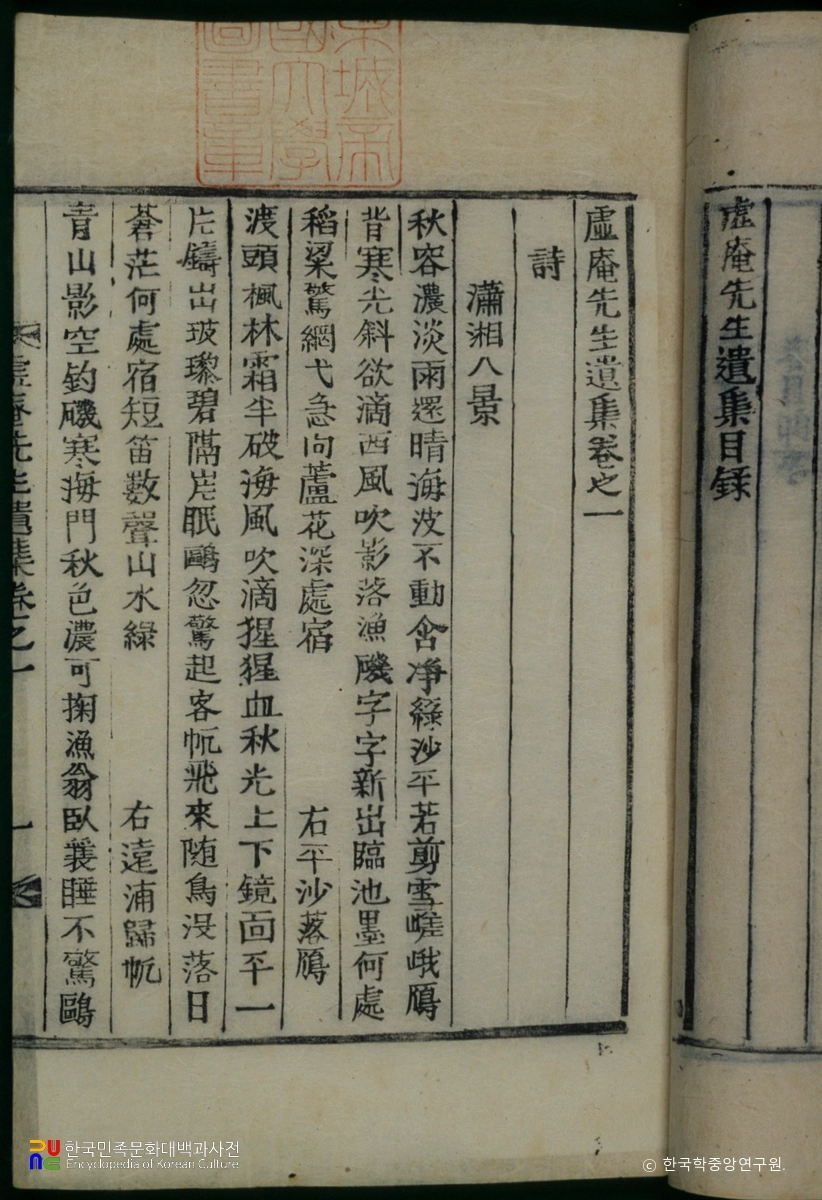 虛庵先生遺集目録
虛庵先生遺集卷之一
詩
瀟湘八景
秋容濃淡雨還晴海波不動含凈綠沙平若剪雪嵯峨鴈
背寒光斜欲滴西風吹影落漁磯字字新出臨池墨何處
稻粱驚網弋急向蘆花深處宿 右平沙落鴈
渡頭楓林霜半破海風吹滴猩猩血秋光上下鏡面平一
片鑄出玻瓈碧隔岸眠鷗忽驚起客帆飛來随鳥没落日
蒼茫何處宿短笛數聲山水綠 右遠浦歸帆
青山影空釣磯寒海門秋色濃可掬漁翁臥蓑睡不驚鷗
虛庵先生遺集卷之一 一
한국민족문화대백과사전
Encyclopedia of Korean Culture
© 한국학중앙연구원.